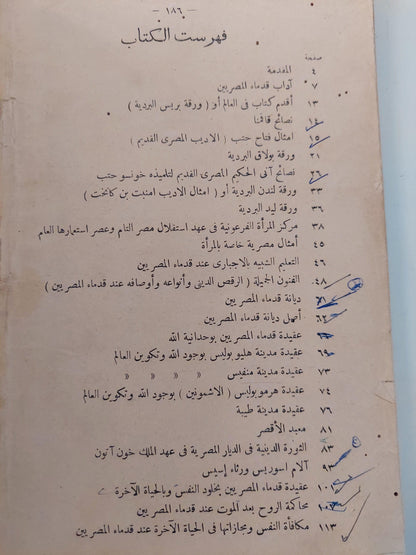 — ١٨٦ —
فهرست الكتاب
صفحة
٤ المقدمة
٧ آداب قدماء المصريين
١٣ أقدم كتاب فى العالم أو ( ورقة بريس البردية )
١٤ نصائح قاقمنا
١٥ امثال فتاح حتب ( الاديب المصرى القديم )
٢١ ورقة بولاق البردية
٢٦ نصائح آنى الحكيم المصرى القديم لتلميذه خونسو حتب
٣٣ ورقة لندن البردية أو ( امثال الاديب امنيت بن كانخت )
٣٦ ورقة ليد البردية
٣٨ مركز المرأة الفرعونية فى عهد استقلال مصر التام وعصر استعمارها العام
٤٥ أمثال مصرية خاصة بالمرأة
٤٦ التعليم الشبيه بالاجبارى عند قدماء المصريين
٤٨ الفنون الجميلة ( الرقص الدينى وأنواعه وأوصافه عند قدماء المصريين )
ديانة قدماء المصريين
٦٢ أصل ديانة قدماء المصريين
عقيدة قدماء المصريين بوحدانية الله
٦٩ عقيدة مدينة هليوبوليس بوجود الله وتكوين العالم
٧٣ عقيدة مدينة منفيس » » » »
٧٤ عقيدة هرموبوليس ( الاشمونين ) بوجود الله وتكوين العالم
٧٦ عقيدة مدينة طيبة
٨١ معبد الأقصر
٨٣ الثورة الدينية فى الديار المصرية فى عهد الملك خون آتون
٩٣ آلام اسوريس ورثاء إسيس
عقيدة قدماء المصريين بخلود النفس وبالحياة الآخرة
محاكمة الروح بعد الموت عند قدماء المصريين
١١٣ مكافأة النفس ومجازاتها فى الحياة الآخرة عند قدماء المصريين